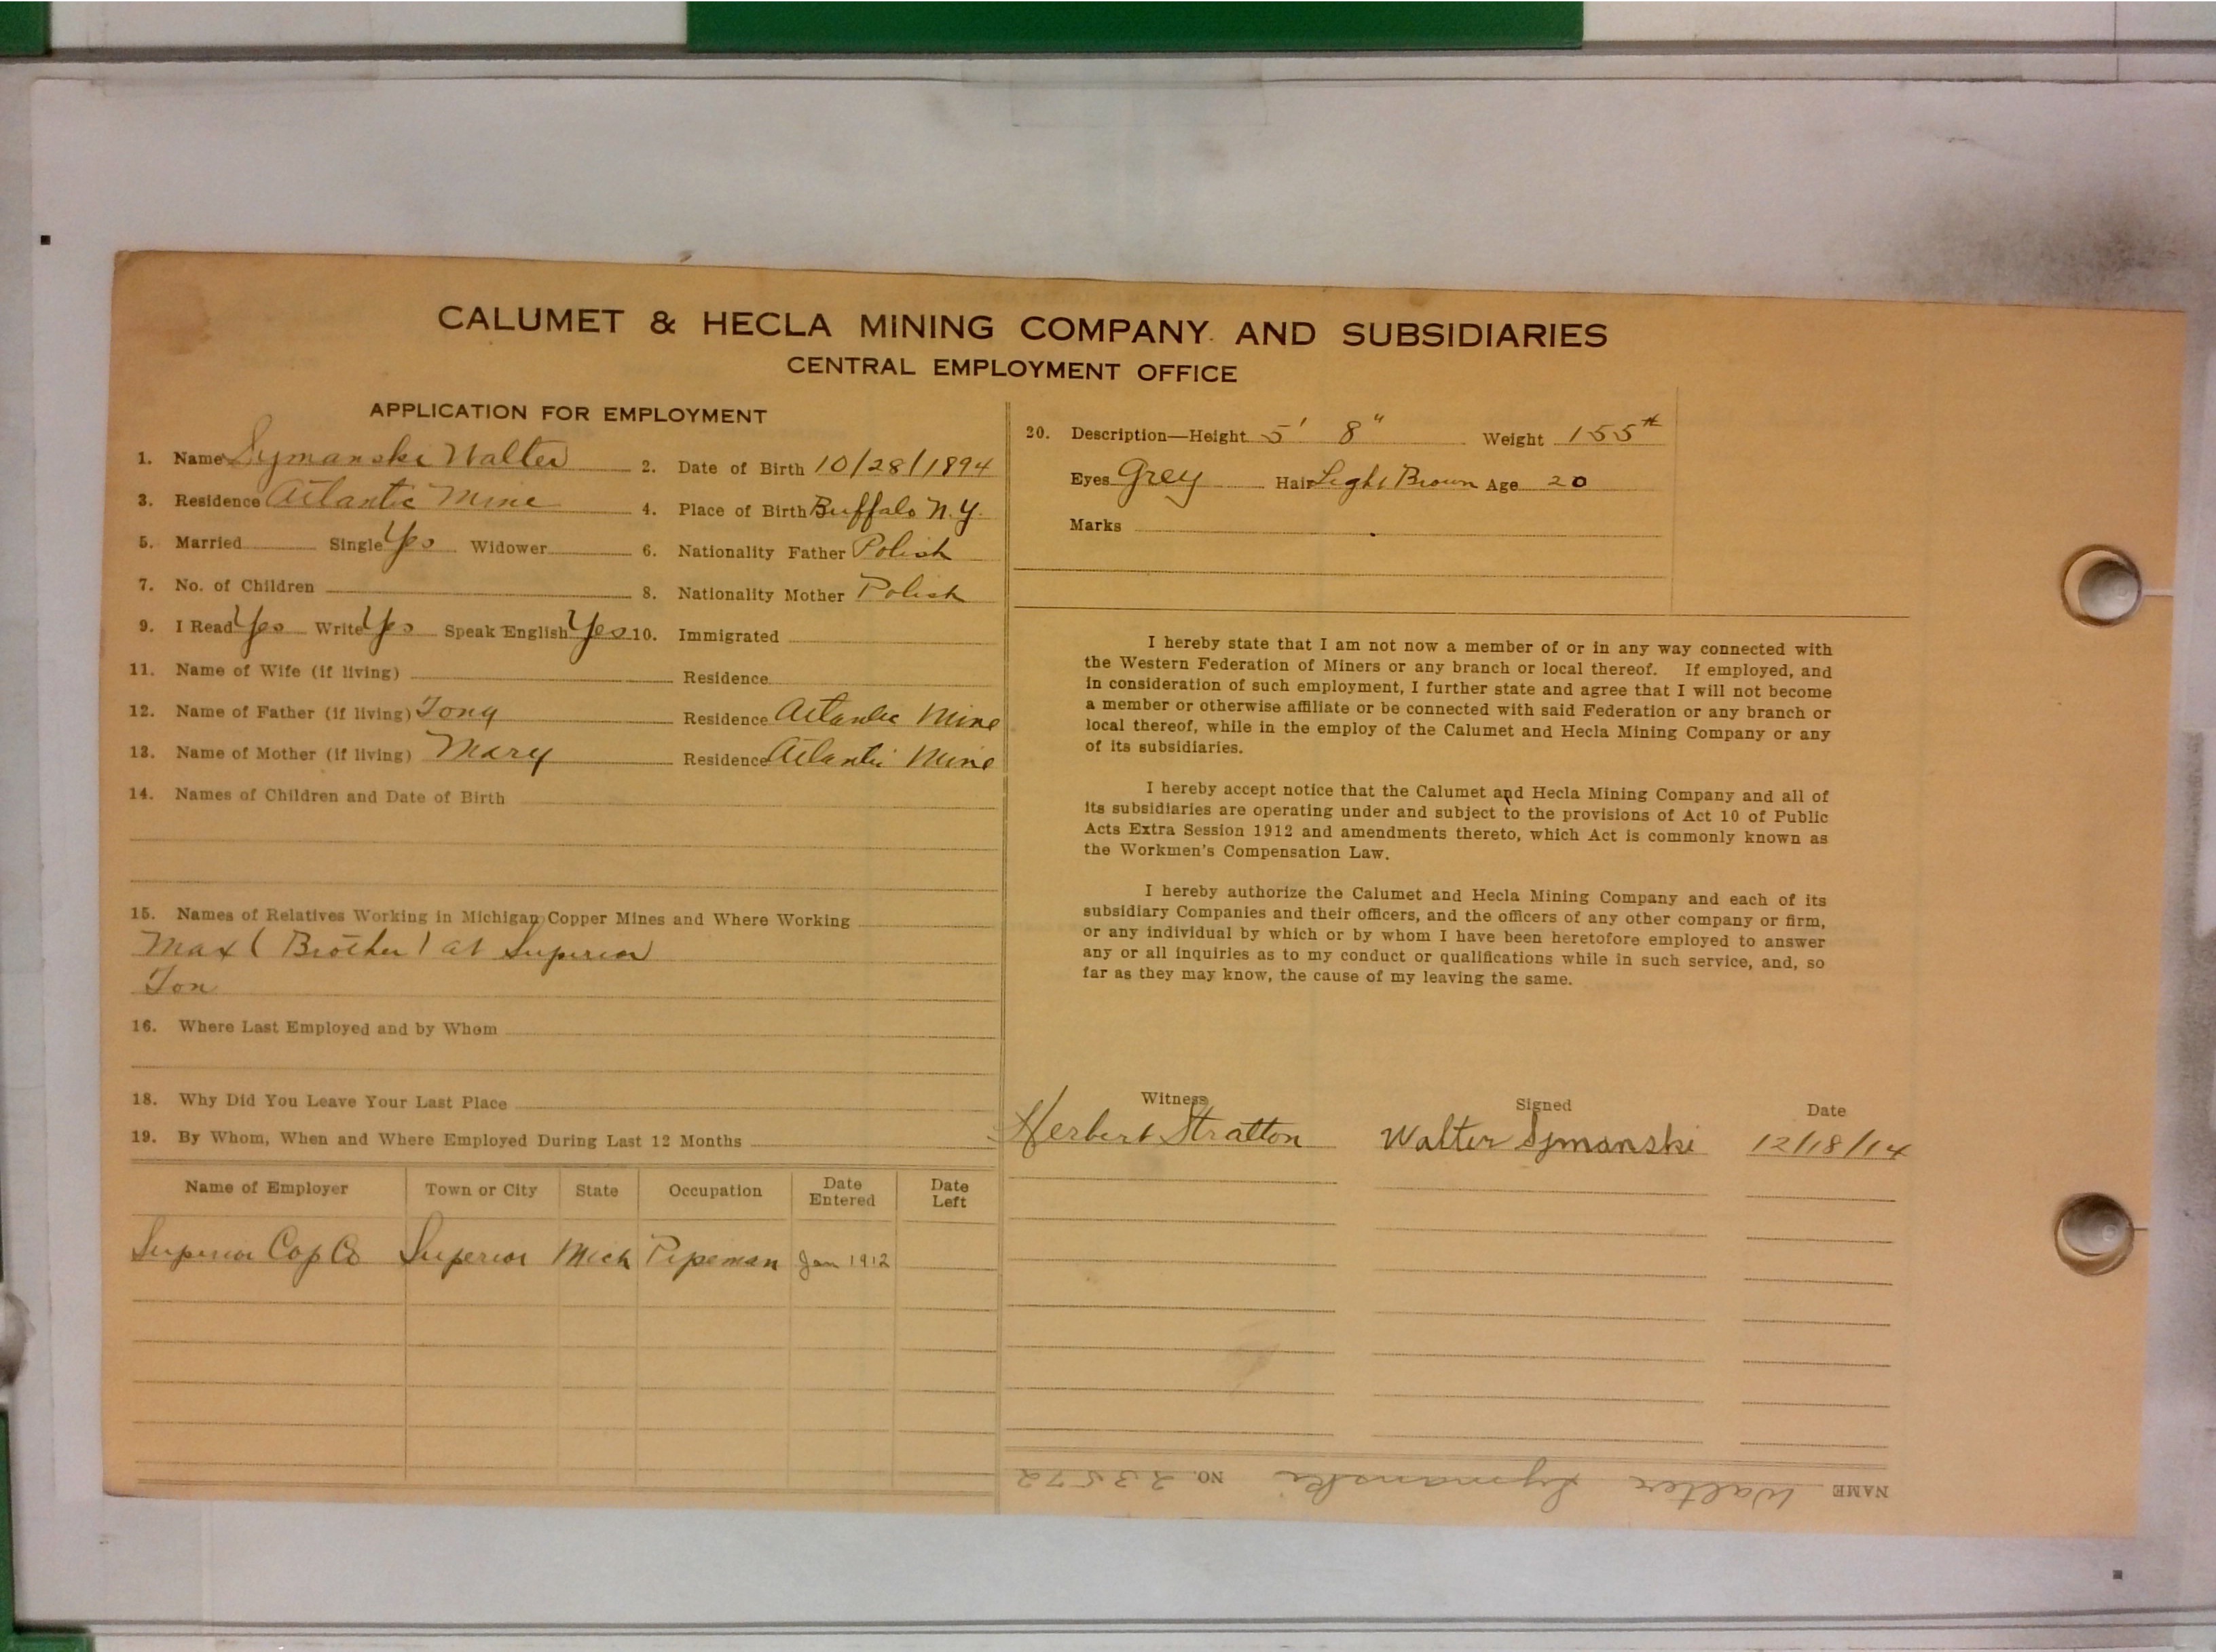 CALUMET & HECLA MINING COMPANY AND SUBSIDIARIES
CENTRAL EMPLOYMENT OFFICE
APPLICATION FOR EMPLOYMENT
1. Name Symanski Walter 2. Date of Birth 10/28/1894
3. Residence Atlantic Mine 4. Place of Birth Buffalo N.Y.
5. Married Single Yes Widower 6. Nationality Father Polish
7. No. of Children 8. Nationality Mother Polish
9. I Read Yes Write Yes Speak English Yes 10. Immigrated
11. Name of Wife (if living) Residence
12. Name of Father (if living) Tony Residence Atlantic Mine
13. Name of Mother (if living) Mary Residence Atlantic Mine
14. Names of Children and Date of Birth
15. Names of Relatives Working in Michigan Copper Mines and Where Working
Max (Brother) at Superior
Ton
16. Where Last Employed and by Whom
18. Why Did You Leave Your Last Place
19. By Whom, When and Where Employed During Last 12 Months
Name of Employer Town or City State Occupation Date Entered Date Left
Superior Cop Co Superior Mich Pipeman Jan 1912
20. Description—Height 5' 8" Weight 155#
Eyes Grey Hair Light Brown Age 20
Marks
I hereby state that I am not now a member of or in any way connected with
the Western Federation of Miners or any branch or local thereof. If employed, and
in consideration of such employment, I further state and agree that I will not become
a member or otherwise affiliate or be connected with said Federation or any branch or
local thereof, while in the employ of the Calumet and Hecla Mining Company or any
of its subsidiaries.
I hereby accept notice that the Calumet and Hecla Mining Company and all of
its subsidiaries are operating under and subject to the provisions of Act 10 of Public
Acts Extra Session 1912 and amendments thereto, which Act is commonly known as
the Workmen's Compensation Law.
I hereby authorize the Calumet and Hecla Mining Company and each of its
subsidiary Companies and their officers, and the officers of any other company or firm,
or any individual by which or by whom I have been heretofore employed to answer
any or all inquiries as to my conduct or qualifications while in such service, and, so
far as they may know, the cause of my leaving the same.
Witness Signed Date
Herbert Stratton Walter Symanski 12/18/14
NAME Walter Symanski NO. 23572